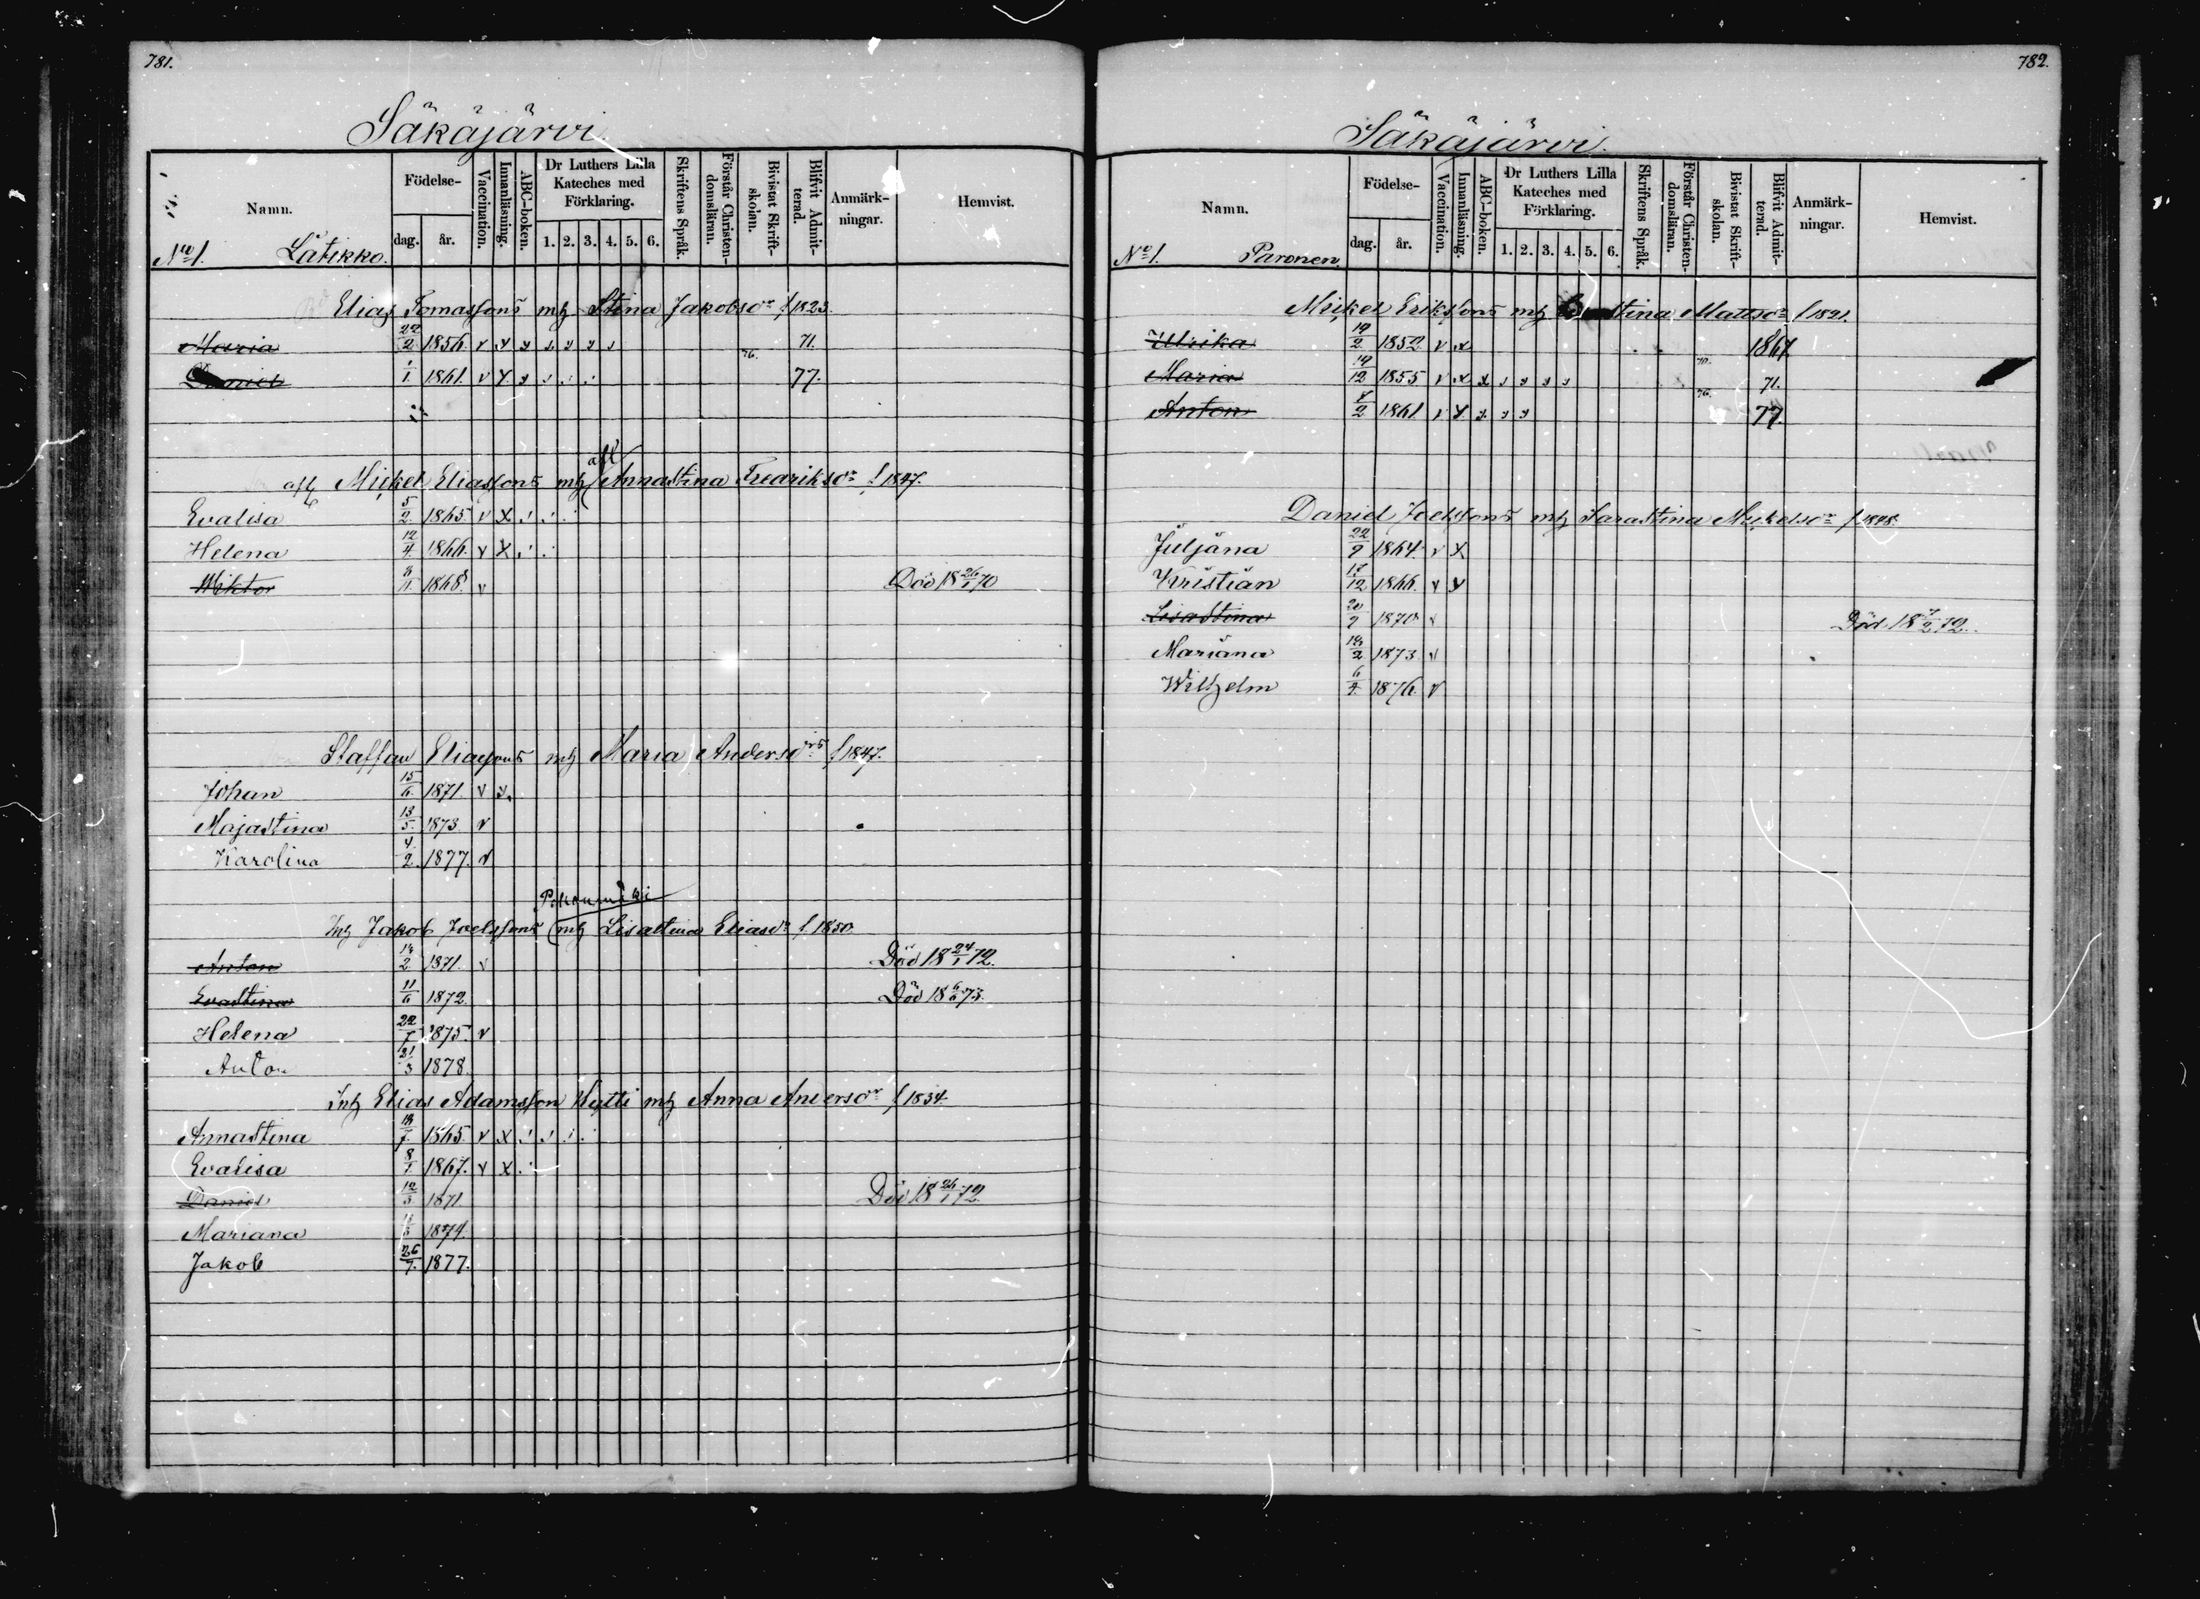 781.
Säkäjärvi
Namn. Födelse- Vaccination. Innanläsning. ABC-boken. Dr Luthers Lilla Kateches med Förklaring. Skriftens Språk. Förstår Christendomsläran. Bivistat Skriftskolan. Blifvit Admitterad. Anmärkningar. Hemvist.
dag. år. 1. 2. 3. 4. 5. 6.
No 1. Lätikko.
Elias Tomassons mh Stina Jakobsdr f 1823.
Maria 22/2 1856. v x 71.
Daniel 1/1 1861. v x 76. 77.
afl Mickel Eliassons mh afl Annastina Fredriksdr f 1847.
Evalisa 5/2 1865. v x
Helena 12/4 1866. v x
Wiktor 8/11 1868. v Död 18 26/1 70
Staffan Eliassons mh Maria Andersdr f 1847.
Johan 15/6 1871. v x
Majastina 13/5 1873. v
Karolina 4/2 1877. v
Inh Jakob Joelssons mh Lisastina Eliasdr f 1850.
Anton 14/2 1871. v Död 18 24/1 72.
Evastina 11/6 1872. Död 18 6/6 73.
Helena 22/7 1875. v
Anton 31/3 1878.
Inh Elias Adamsson Hytti mh Anna Andersdr f 1834.
Annastina 18/7 1865. v x
Evalisa 8/1 1867. v x
Daniel 12/3 1871. Död 18 26/1 72.
Mariana 1874.
Jakob 26/7 1877.
782.
Säkäjärvi.
Namn. Födelse- Vaccination. Innanläsning. ABC-boken. Dr Luthers Lilla Kateches med Förklaring. Skriftens Språk. Förstår Christendomsläran. Bivistat Skriftskolan. Blifvit Admitterad. Anmärkningar. Hemvist.
dag. år. 1. 2. 3. 4. 5. 6.
No 1. Paronen.
Mickel Erikssons mh stina Mattsdr f 1821.
Ulrika 19/2 1852. v x 1867.
Maria 19/12 1855 v x x 70. 71.
Anton 8/2 1861. v x 76. 77.
Daniel Joelssons mh Sarastina Mickelsdr f 1848.
Juljana 22/9 1864. v x
Kristian 17/12 1866. v x
Lisastina 20/9 1870. v Död 18 7/2 72.
Mariana 18/2 1873. v
Wilhelm 6/4 1876. v